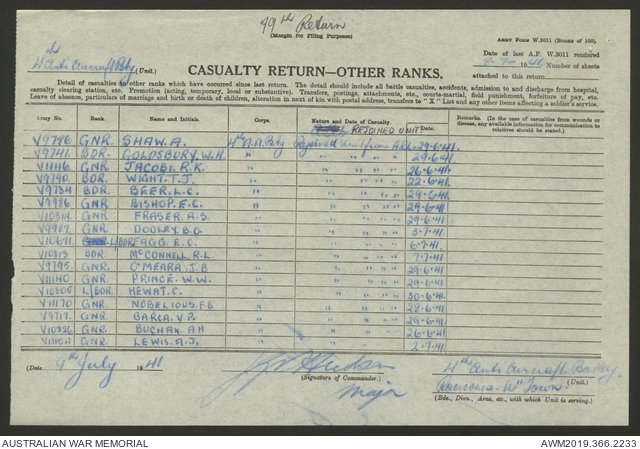 99th Return
(Margin for Filing Purposes)
ARMY FORM W.3011 (BOOKS OF 100).
4th Anti Aircraft Bty (Unit.)
Date of last A.F. W.3011 rendered
CASUALTY RETURN—OTHER RANKS.
Number of sheets
attached to this return
Detail of casualties to other ranks which have occurred since last return. The detail should include all battle casualties, accidents, admission to and discharge from hospital,
casualty clearing station, etc. Promotion (acting, temporary, local or substantive). Transfers, postings, attachments, etc., courts-martial, field punishment, forfeiture of pay, etc.
Leave of absence, particulars of marriage and birth or death of children, alteration in next of kin with postal address, transfers to "X" List and any other items affecting a soldier's service.
Army No. Rank. Name and Initials. Corps. Nature and Date of Casualty. REJOINED UNIT Date. REMARKS. (In the case of casualties from wounds or disease, any available information for communication to relatives should be stated.)
V9786 GNR. SHAW. A. 4th A.A. Bty Rejoined Unit from 29.6.41.
V9741 BDR. GOLDSBURY. W.H. " " " " " 29.6.41
V11116 GNR. JACOBI. R.K. " " " " " 26.6.41
V9740 BDR. WIGHT. T.J. " " " " " 22.6.41
V9734 BDR. BEER. L.C. " " " " " 29.6.41
V9986 GNR. BISHOP. E.C. " " " " " 29.6.41
V10814 GNR. FRASER. A.S. " " " " " 29.6.41
V9987 GNR. DOOLEY. B.O. " " " " " 3.7.41
V10671 L/BDR FAGG. E.C. " " " " " 6.7.41
V10813 BDR. McCONNELL. R.L. " " " " " 7.7.41
V9795 GNR. O'MEARA. J.B " " " " " 29.6.41
V11140 GNR. PRINCE. W.W. " " " " " 29.6.41
V10808 L/BDR. HEWAT. C. " " " " " 30.6.41
V11170 GNR. NOBELIOUS. F.B " " " " " 28.6.41
V9717 GNR. BARCA. V.P. " " " " " 29.6.41
V10326 GNR. BUCHAN. A.H " " " " " 26.6.41
GNR. LEWIS. A.J. " " " " " 2.7.41
(Date 9th July 1941
(Signature of Commander.)
Major
4th Anti Aircraft Battery
(Unit.)
Racecourse W'Town
(Bde., Divn., Area, etc., with which Unit is serving.)
AUSTRALIAN WAR MEMORIAL
AWM2019.366.2233